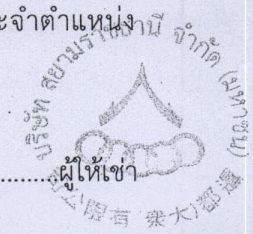 ะจำตำแหน่ง
บริษัท สยามราชธานี จำกัด (มหาชน)
..........ผู้ให้เช่า
限有 衆大